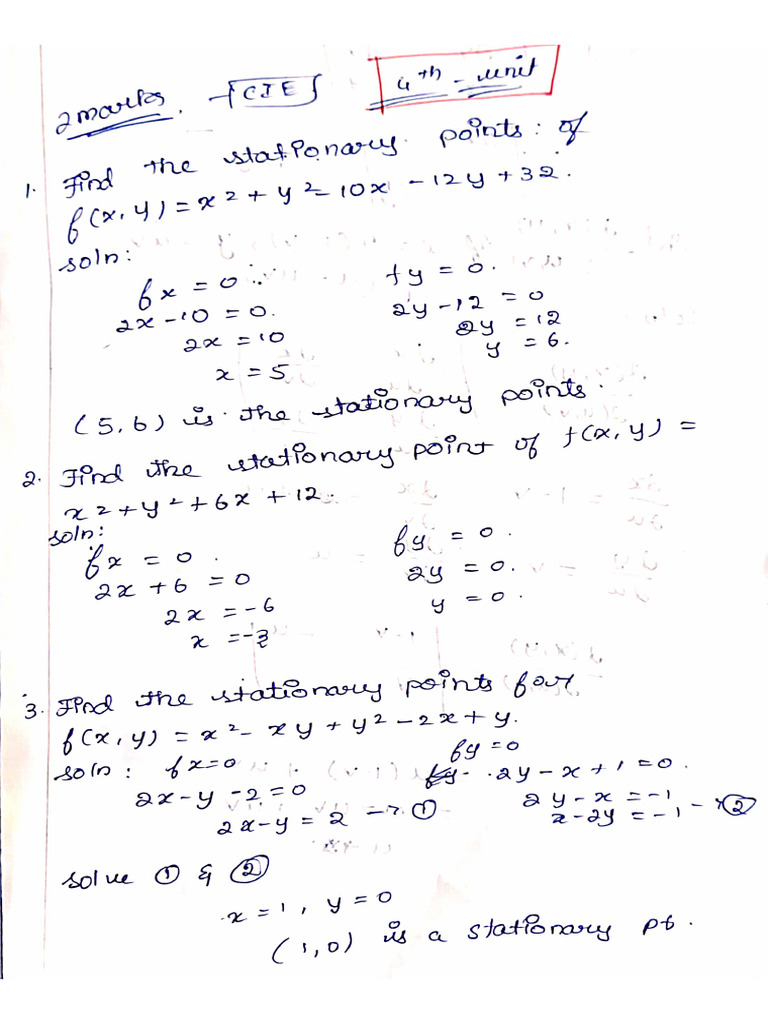 2marks. CIE 4th - unit
1. Find the stationary points: of
f(x,y) = x² + y² - 10x - 12y + 32.
soln:
fx = 0 fy = 0.
2x - 10 = 0. 2y - 12 = 0
2x = 10 2y = 12
x = 5 y = 6.
(5,6) is the stationary points.
2. Find the stationary point of f(x,y) =
x² + y² + 6x + 12.
soln:
fx = 0. fy = 0.
2x + 6 = 0 2y = 0.
2x = -6 y = 0.
x = -3
3. Find the stationary points for
f(x,y) = x² - xy + y² - 2x + y.
soln: fx = 0 fy = 0
2x - y - 2 = 0 2y - x + 1 = 0.
2x - y = 2 → ① 2y - x = -1
x - 2y = -1 → ②
solve ① & ②
x = 1, y = 0
(1,0) is a stationary pt.